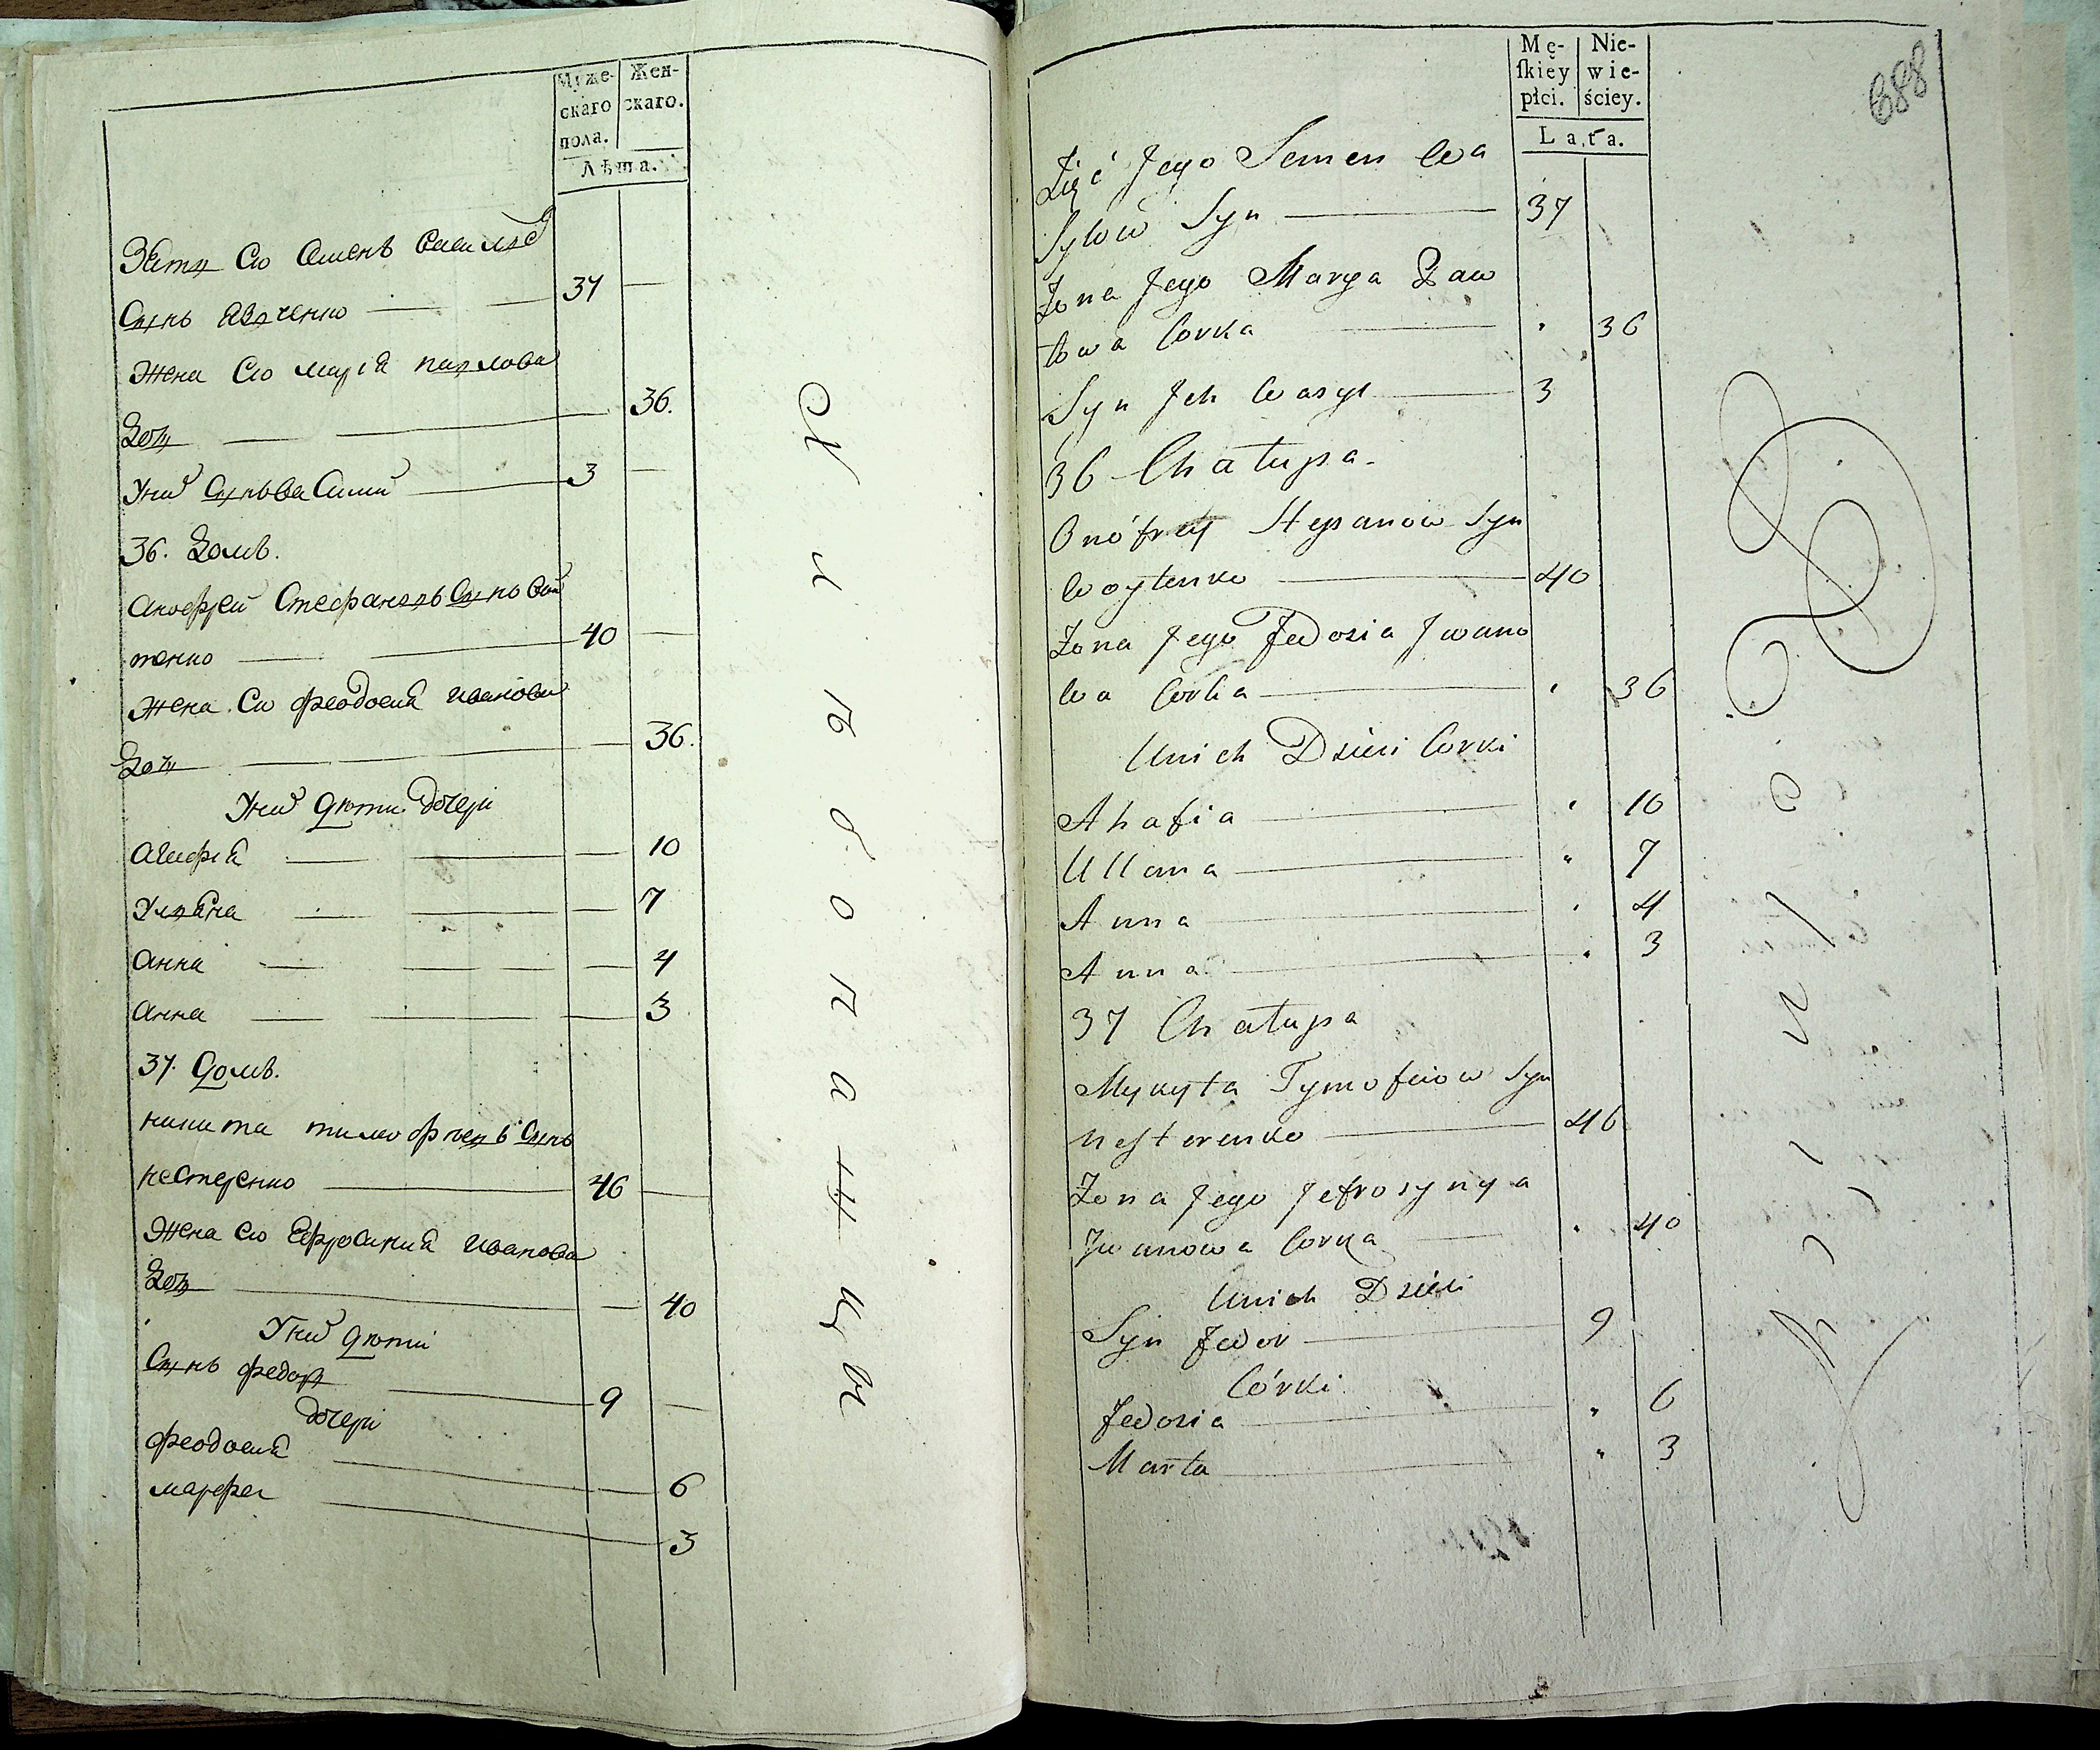 Муже-
скаго
пола.
Жен-
скаго.
Лѣта.
Зять Его Семенъ Василье
Сынъ 37
Жена Его Марія Павлова
Дочь 36.
У них Сынъ Василий 3
36. Домъ.
Анофрей Стефановъ Сынъ Вой
тенко 40
Жена Его Феодосия Иванова
Дочь 36.
У них дѣти дочери
Агафия 10
Уляна 7
Анна 4
Анна 3
37. Домъ.
Никита Тимофеевъ Сынъ
Нестеренко 46
Жена Его Ефросиния Иванова
Дочь 40
У них дѣти
Сынъ Федор 9
дочери
Феодосия 6
Марфа 3
Mę-
ſkiey
płci.
Nie-
wie-
ściey.
Lata.
388
Zięć Jego Semen Wa
Sylow Syn 37
Żona Jego Marya Paw
łowa Corka 36
Syn Ich Wasyl 3
36 Chałupa.
Onófrey Stepanow Syn
Woytenko 40
Żona Jego Fedosia Iwano
wa Corka 36
U nich Dzieci Corki
Ahafia 10
Ullana 7
Anna 4
Anna 3
37 Chałupa
Mykyta Tymofiiow Syn
Nesterenko 46
Żona Jego Jefrosynya
Iwanowa Corka 40
U nich Dzieci
Syn Fedor 9
Córki
Fedosia 6
Marta 3